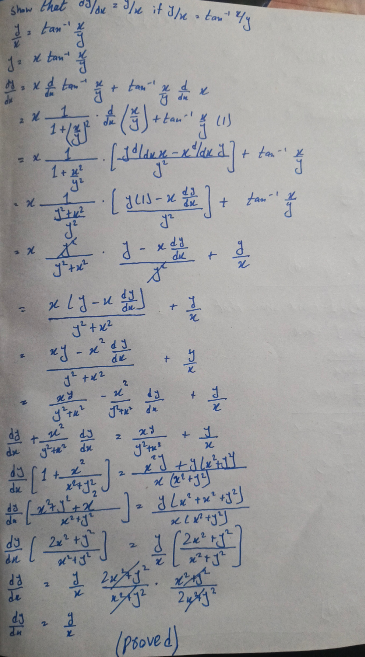 show that dy/dx = y/x if y/x = tan⁻¹ x/y
y/x = tan⁻¹ x/y
y = x tan⁻¹ x/y
dy/dx = x d/dx tan⁻¹ x/y + tan⁻¹ x/y d/dx x
= x 1/(1+(x/y)²) · d/dx (x/y) + tan⁻¹ x/y (1)
= x 1/(1 + x²/y²) · [(y d/dx x − x d/dx y)/y²] + tan⁻¹ x/y
= x 1/((y²+x²)/y²) · [(y(1) − x dy/dx)/y²] + tan⁻¹ x/y
= x y²/(y²+x²) · (y − x dy/dx)/y² + y/x
= x[y − x dy/dx]/(y²+x²) + y/x
= (xy − x² dy/dx)/(y²+x²) + y/x
= xy/(y²+x²) − x²/(y²+x²) dy/dx + y/x
dy/dx + x²/(y²+x²) dy/dx = xy/(y²+x²) + y/x
dy/dx [1 + x²/(x²+y²)] = (x²y + y(x²+y²))/(x(x²+y²))
dy/dx [(x²+y²+x²)/(x²+y²)] = y(x²+x²+y²)/(x(x²+y²))
dy/dx [(2x²+y²)/(x²+y²)] = y/x [(2x²+y²)/(x²+y²)]
dy/dx = y/x (2x²+y²)/(x²+y²) · (x²+y²)/(2x²+y²)
dy/dx = y/x
(proved)